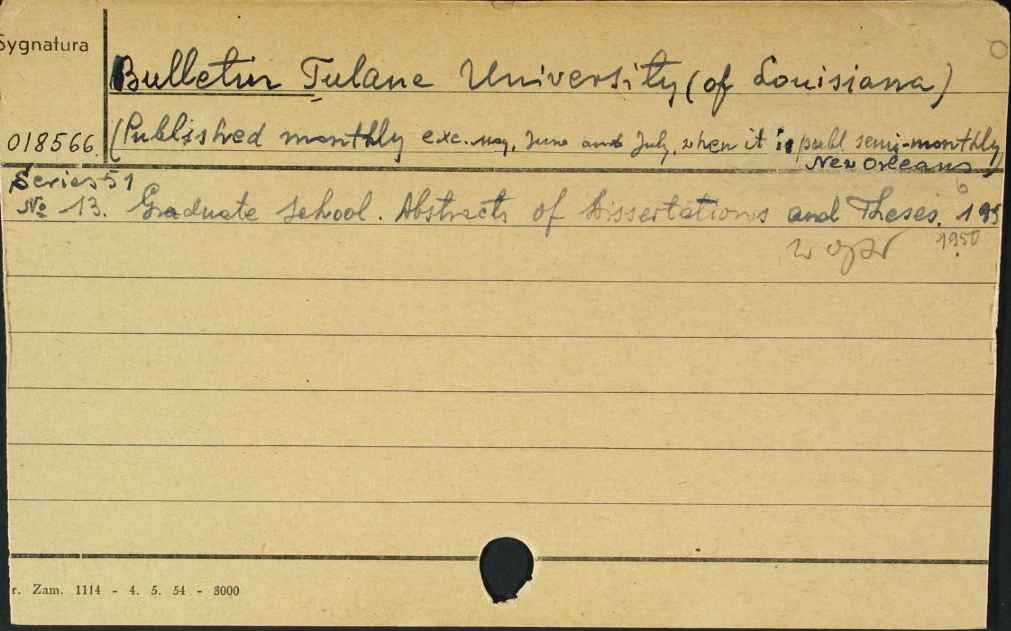 Sygnatura
Bulletin Tulane University (of Louisiana)
018566. (Published monthly exc. may, June and July, when it is publ. semi-monthly)
New Orleans
Series 51
№ 13. Graduate School. Abstracts of Dissertations and Theses. 195
1950
w opr
r. Zam. 1114 - 4. 5. 54 - 3000